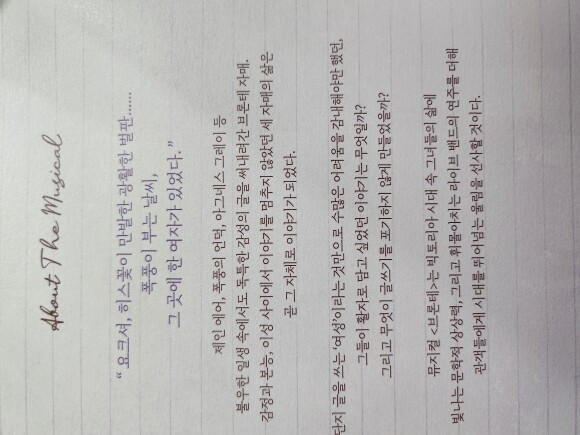 About The Musical
“ 요크셔, 히스꽃이 만발한 광활한 벌판……
폭풍이 부는 날씨,
그 곳에 한 여자가 있었다. ”
제인 에어, 폭풍의 언덕, 아그네스 그레이 등
불우한 일생 속에서도 독특한 감성의 글을 써내려간 브론테 자매.
감정과 본능, 이성 사이에서 이야기를 멈추지 않았던 세 자매의 삶은
곧 그 자체로 이야기가 되었다.
단지 글을 쓰는 '여성'이라는 것만으로 수많은 어려움을 감내해야만 했던,
그들이 활자로 담고 싶었던 이야기는 무엇일까?
그리고 무엇이 글쓰기를 포기하지 않게 만들었을까?
뮤지컬 <브론테>는 빅토리아 시대 속 그녀들의 삶에
빛나는 문학적 상상력, 그리고 휘몰아치는 라이브 밴드의 연주를 더해
관객들에게 시대를 뛰어넘는 울림을 선사할 것이다.